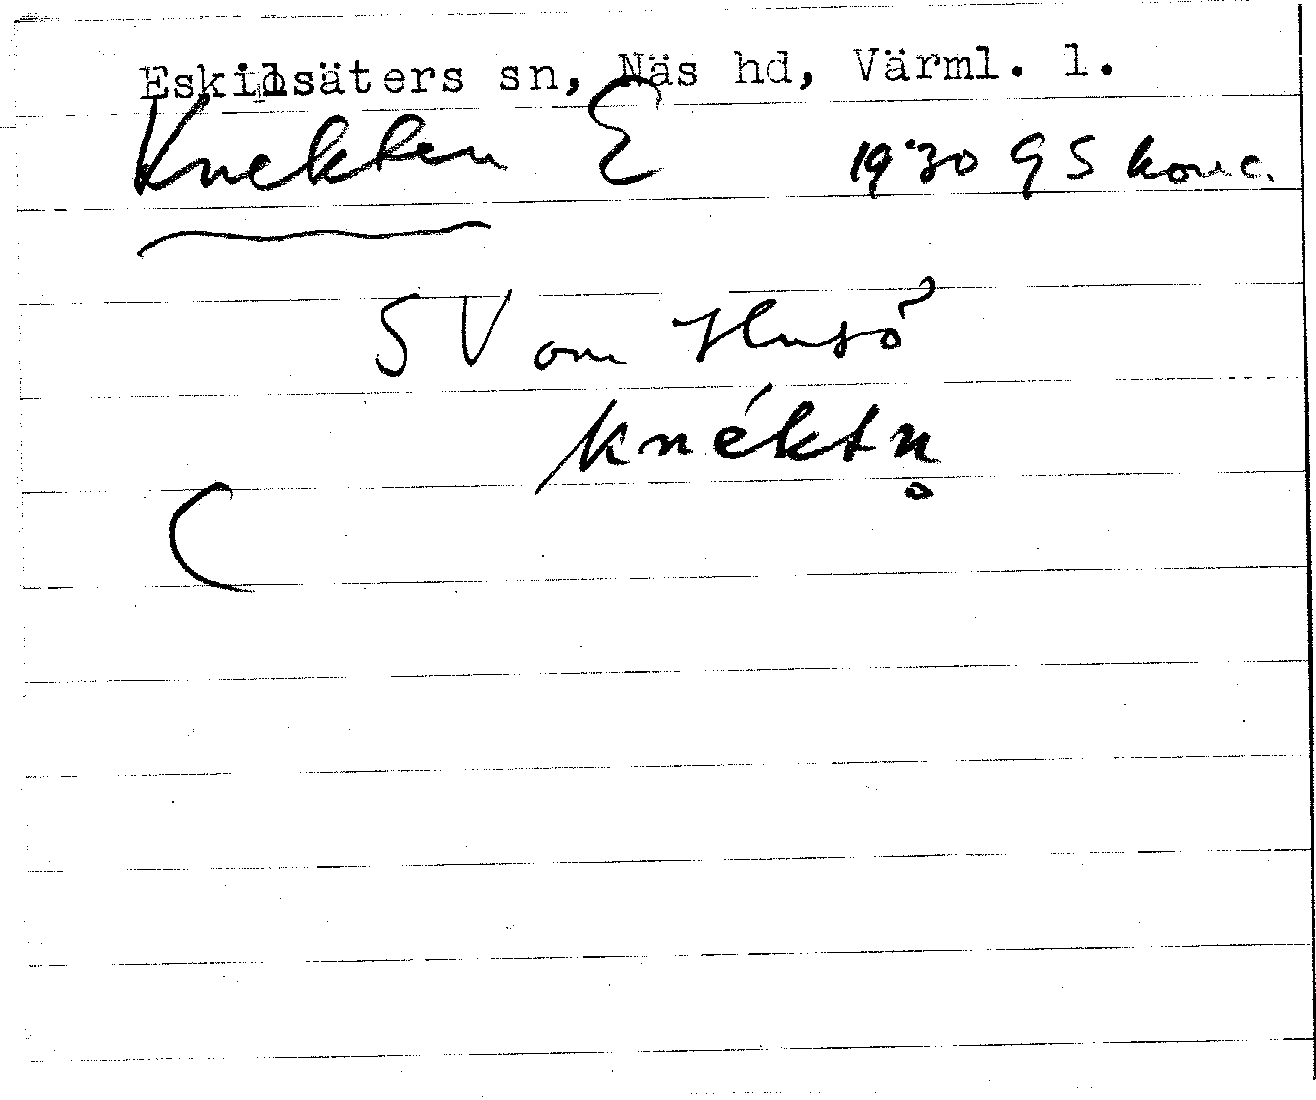 Eskilsäters sn, Näs hd, Värml. l.
Knekten E 1930 GS konc.
SV om Husö
knéktn̥